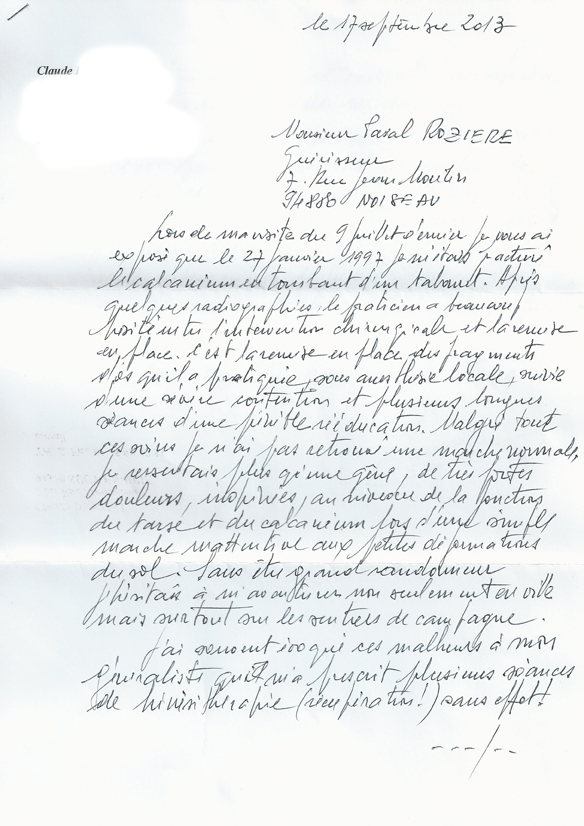 le 17 septembre 2013
Claude
Monsieur Pascal ROZIERE
Guérisseur
7. Rue Jean Moulin
94880 NOISEAU
Lors de ma visite du 9 juillet dernier je vous ai
exposé que le 27 janvier 1997 je m'étais fracturé
le calcanéum en tombant d'un tabouret. Après
quelques radiographies le praticien a beaucoup
hésité entre l'intervention chirurgicale et la remise
en place. C'est la remise en place des fragments
d'os qu'il a pratiquée, sous anesthésie locale, suivie
d'une sévère contention et plusieurs longues
séances d'une pénible rééducation. Malgré tout
ces soins je n'ai pas retrouvé une marche normale,
je ressentais plus qu'une gêne, de très fortes
douleurs, inopinées, au niveau de la jonction
du tarse et du calcanéum lors d'une simple
marche inattentive aux petites déformations
du sol. Sans être grand randonneur
j'hésitais à m'aventurer non seulement en ville
mais surtout sur les sentiers de campagne.
J'ai souvent évoqué ces malheurs à mon
généraliste qui m'a prescrit plusieurs séances
de kinésithérapie (récupération!) sans effet!
---/--